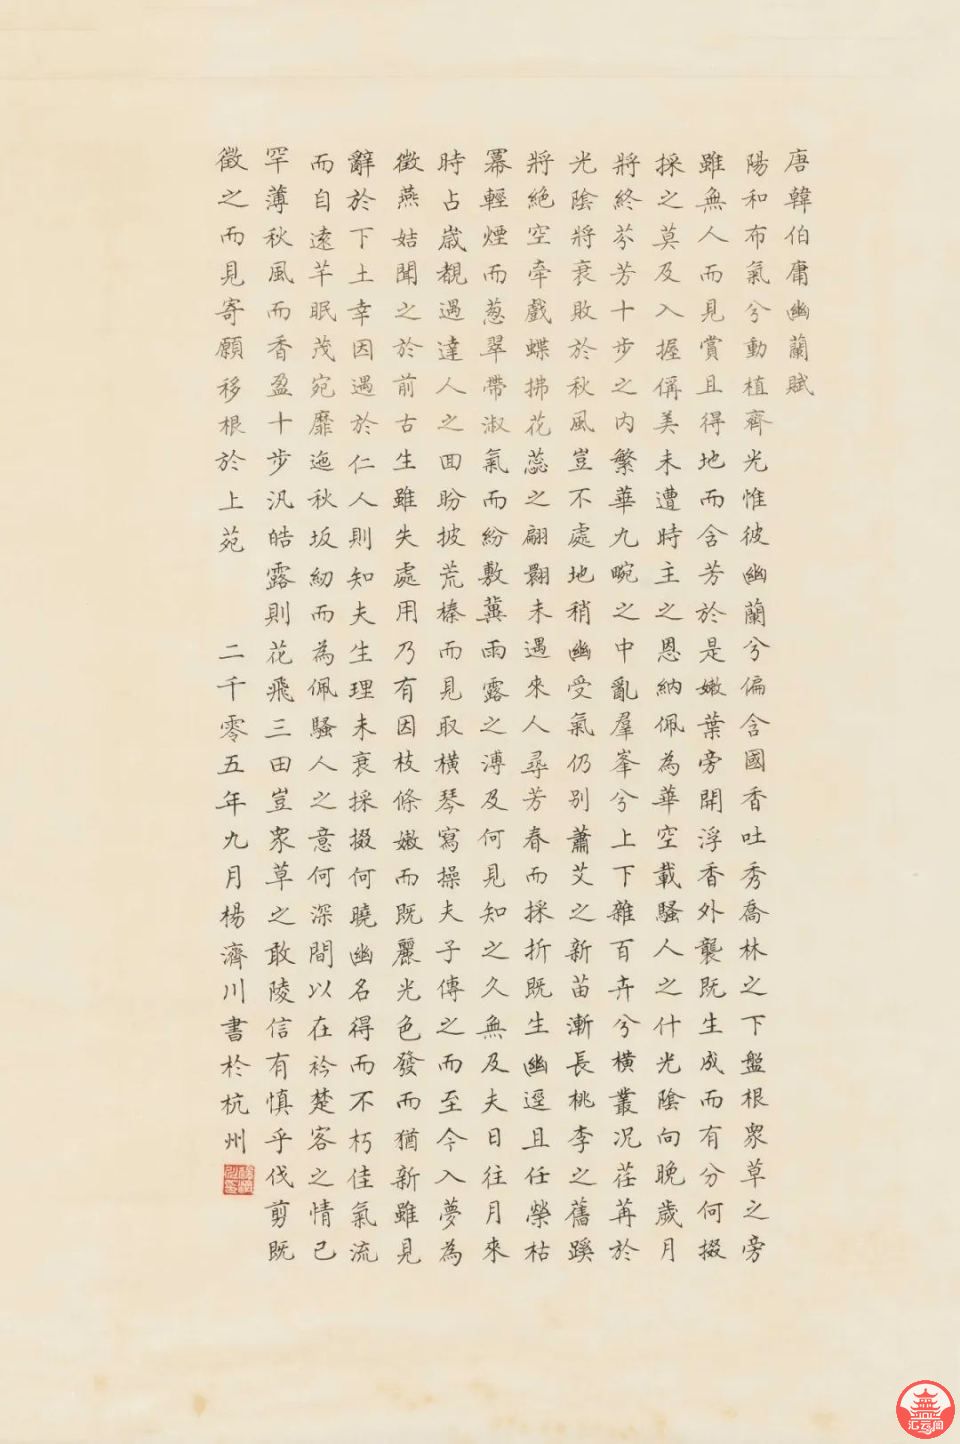 唐韓伯庸幽蘭賦
陽和布氣兮動植齊光惟彼幽蘭兮偏含國香吐秀喬林之下盤根眾草之旁
雖無人而見賞且得地而含芳於是嫩葉旁開浮香外襲既生成而有分何掇
採之莫及入握偁美未遭時主之恩納佩為華空載騷人之什光陰向晚歲月
將終芬芳十步之內繁華九畹之中亂羣峯兮上下雜百卉兮橫叢況荏苒於
光陰將衰敗於秋風豈不處地稍幽受氣仍別蕭艾之新苗漸長桃李之舊蹊
將絕空牽戲蝶拂花蕊之翩翾未遇來人尋芳春而採折既生幽逕且任榮枯
冪輕煙而葱翠帶淑氣而紛敷冀雨露之溥及何見知之久無及夫日往月來
時占歲覩遇達人之回盼披荒榛而見取橫琴寫操夫子傳之而至今入夢為
徵燕姞聞之於前古生雖失處用乃有因枝條嫩而既麗光色發而猶新雖見
辭於下土幸因遇於仁人則知夫生理未衰採掇何曉幽名得而不朽佳氣流
而自遠芊眠茂宛靡迤秋坂紉而為佩騷人之意何深間以在衿楚客之情已
罕薄秋風而香盈十步汎皓露則花飛三田豈眾草之敢陵信有慎乎伐剪既
徵之而見寄願移根於上苑 二千零五年九月楊濟川書於杭州
汇云阁